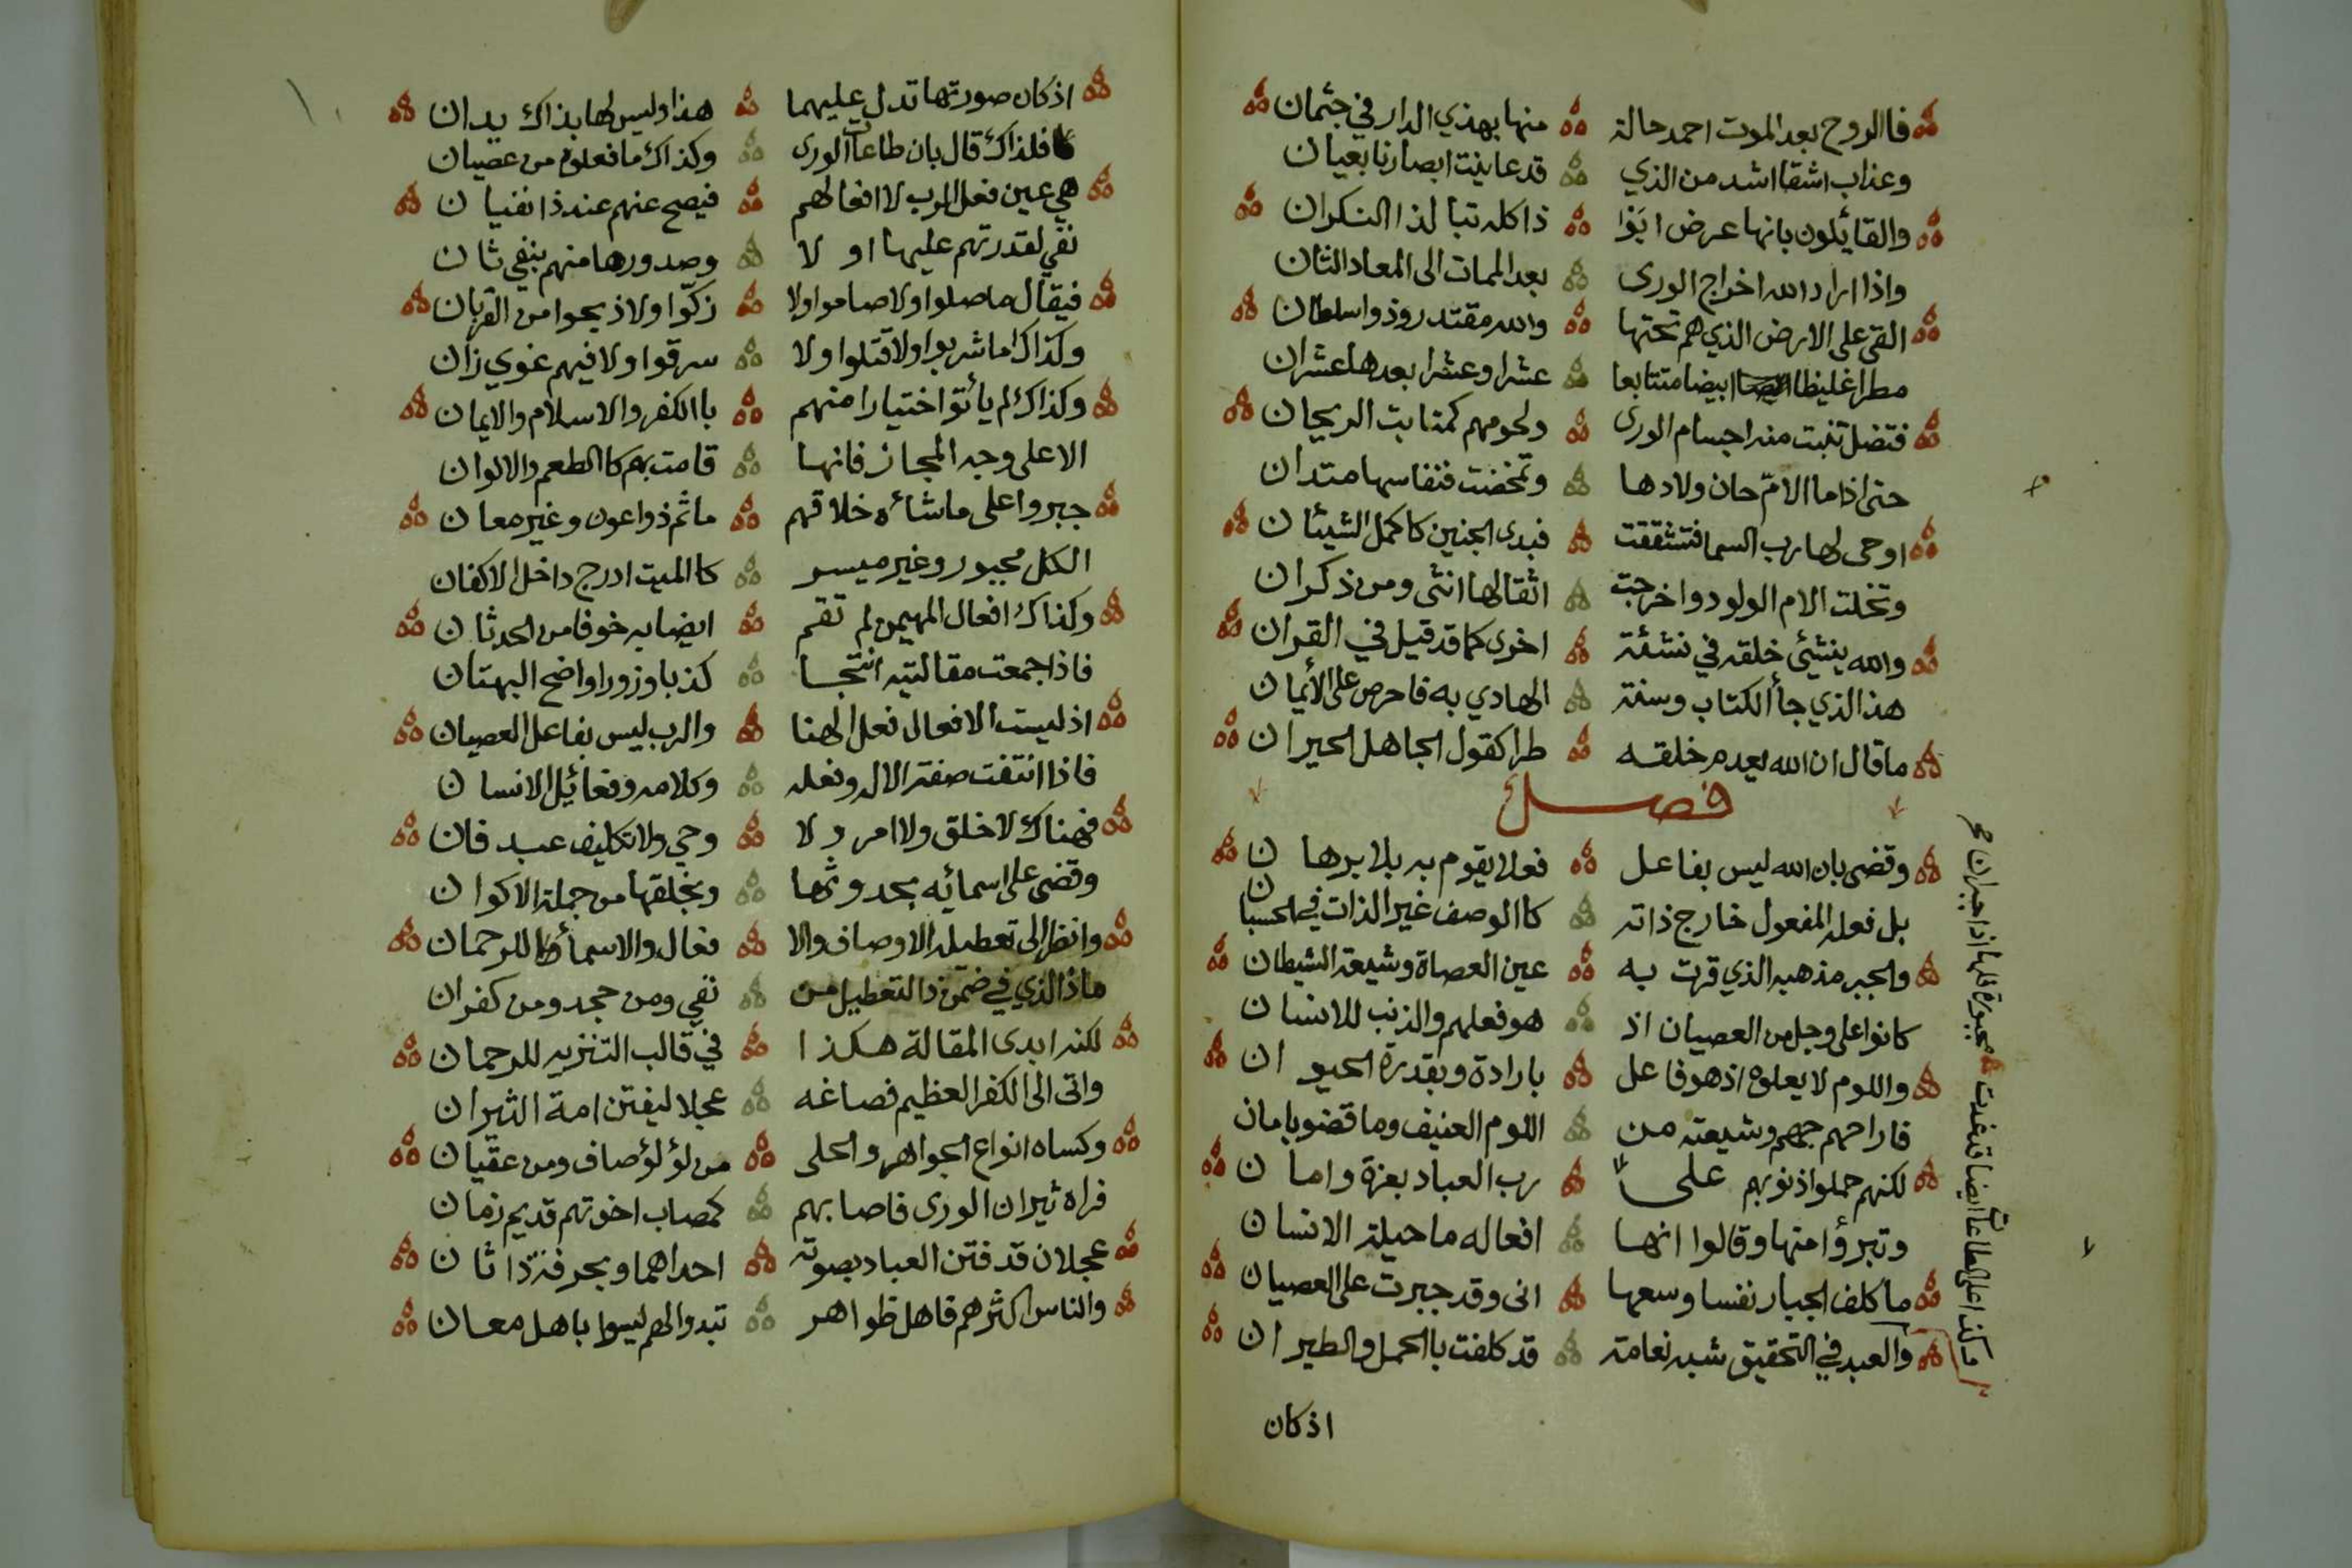 فاالروح بعد الموت احمد حالة منها بهذي الدار في جثمان
وعذاب اشقا اشد من الذي قد عاينت ابصارنا بعيان
والقائلون بانها عرض ابَوْا ذا كله تبا لذا النكران
واذا اراد الله اخراج الورى بعد الممات الى المعاد الثان
القى على الارض الذي هم تحتها والله مقتدر وذوا سلطان
مطرا غليظا ابيضا متتابعا عشرا وعشرا بعدها عشران
فتضل تنبت منه اجسام الورى ولحومهم كمنابت الريحان
حتى اذا ما الامّ حان ولادها وتمخضت فنفاسها متدان
اوحى لها رب السما فتشققت فبدى الجنين كاكمل الشيئان
وتخلت الام الولود واخرجت اثقالها انثى ومن ذكران
والله ينشئي خلقه في نشئة اخرى كما قد قيل في القران
هذا الذي جأ الكتاب وسنة الهادي به فاحرص على الأيمان
ما قال ان الله يعدم خلقه طرا كقول الجاهل الحيران
فصل
وقضى بان الله ليس بفاعل فعلا يقوم به بلا برهان
بل فعله المفعول خارج ذاته كاالوصف غير الذات في الحسبان
والجبر مذهبه الذي قرت به عين العصاة وشيعة الشيطان
كانوا على وجل من العصيان اذ هو فعلهم والذنب للانسان
واللوم لا يعدوه اذ هو فاعل بارادة وبقدرة الحيوان
فاراحهم جهم وشيعته من اللوم العنيف وما قضو بامان
لكنهم حملوا ذنوبهم على رب العباد بعزة وامان
وتبرؤا منها وقالوا انها افعاله ما حيلة الانسان
ما كلف الجبار نفسا وسعها انى وقد جبرت على العصيان
والعبد في التحقيق شبه نعامة قد كلفت باالحمل والطيران
وكذا على الطاعات ايضا قد غدت مجبورة فلها اذا جبران صح
اذ كان
اذ كان صورتها تدل عليهما هذا وليس لها بذاك يدان
فلذاك قال بان طاعات الورى وكذاك ما فعلوه من عصيان
هي عين فعل الرب لا افعالهم فيصح عنهم عند ذا نفيان
نفي لقدرتهم عليها اولا وصدورها منهم بنفي ثان
فيقال ما صلوا ولا صاموا ولا زكّوا ولا ذبحوا من القربان
وكذاك ما شربوا ولا قتلوا ولا سرقوا ولا فيهم غوي زان
وكذاك لم يأتو اختيارا منهم باالكفر والاسلام والايمان
الا على وجه المجاز فانها قامت بهم كاالطعم والالوان
جبروا على ما شائه خلاقهم ما ثم ذوا عون وغير معان
الكل مجبور وغير ميسر كاالميت ادرج داخل الاكفان
وكذاك افعال المهيمن لم تقم ايضا به خوفا من الحدثان
فاذا جمعت مقالتيه انتجا كذبا وزورا واضح البهتان
اذ ليست الافعال فعل الهنا والرب ليس بفاعل العصيان
فاذا انتفت صفة الاله وفعله وكلامه وفعائل الانسان
فهناك لا خلق ولا امر ولا وحي ولا تكليف عبد فان
وقضى على اسمائه بحدوثها وبخلقها من جملة الاكوان
وانظر الى تعطيله الاوصاف والا فعال والاسمأ للرحمان
ماذا الذي في ضمن ذا التعطيل من نفي ومن جحد ومن كفران
لكنه ابدى المقالة هكذا في قالب التنزيه للرحمان
واتى الى الكفر العظيم فصاغه عجلا ليفتن امة الثيران
وكساه انواع الجواهر والحلى من لؤلؤ صاف ومن عقيان
فراه ثيران الورى فاصابهم كمصاب اخوتهم قديم زمان
عجلان قد فتن العباد بصوته احداهما وبحرفة ذا ثان
والناس اكثرهم فاهل ظواهر تبدوا لهم ليسوا باهل معان